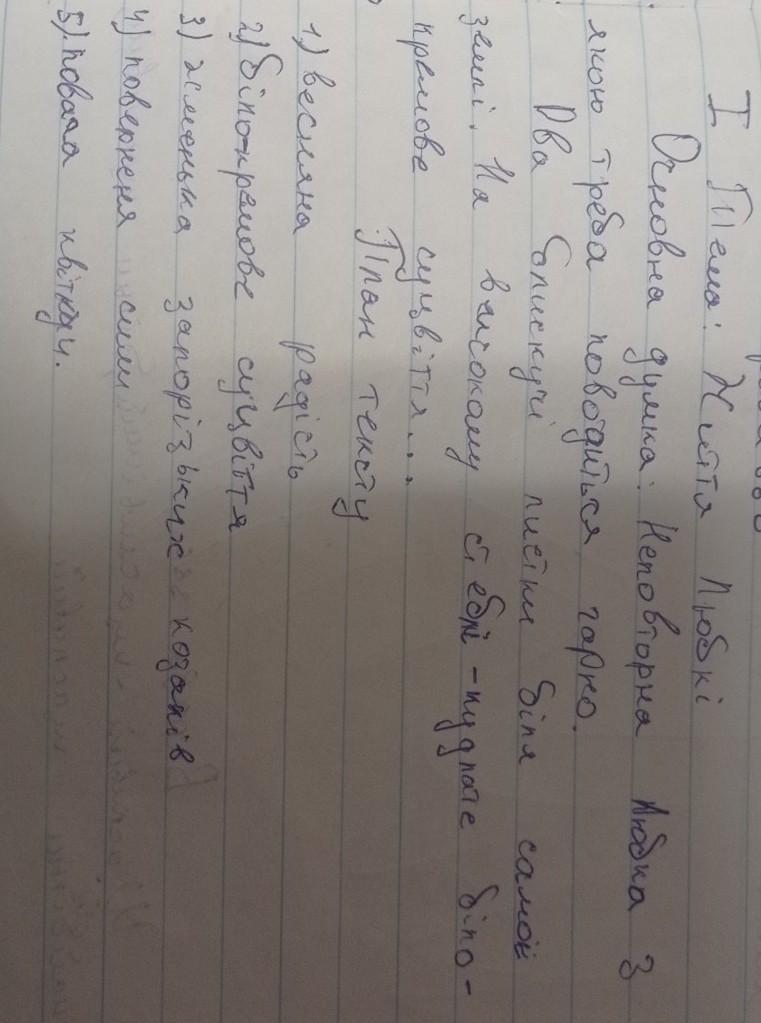 І Тема: Життя Любкі
Основна думка: Неповторна Любка з
якою треба поводиться гарно.
Два блискучі листки біля самої
землі. На високому стеблі - кудлате біло-
кремове суцвіття...
План тексту
1) весняна радість
2) біло-кремове суцвіття
3) жменька запорізьких козаків
4) поверненя сили
5) повага квіткам.